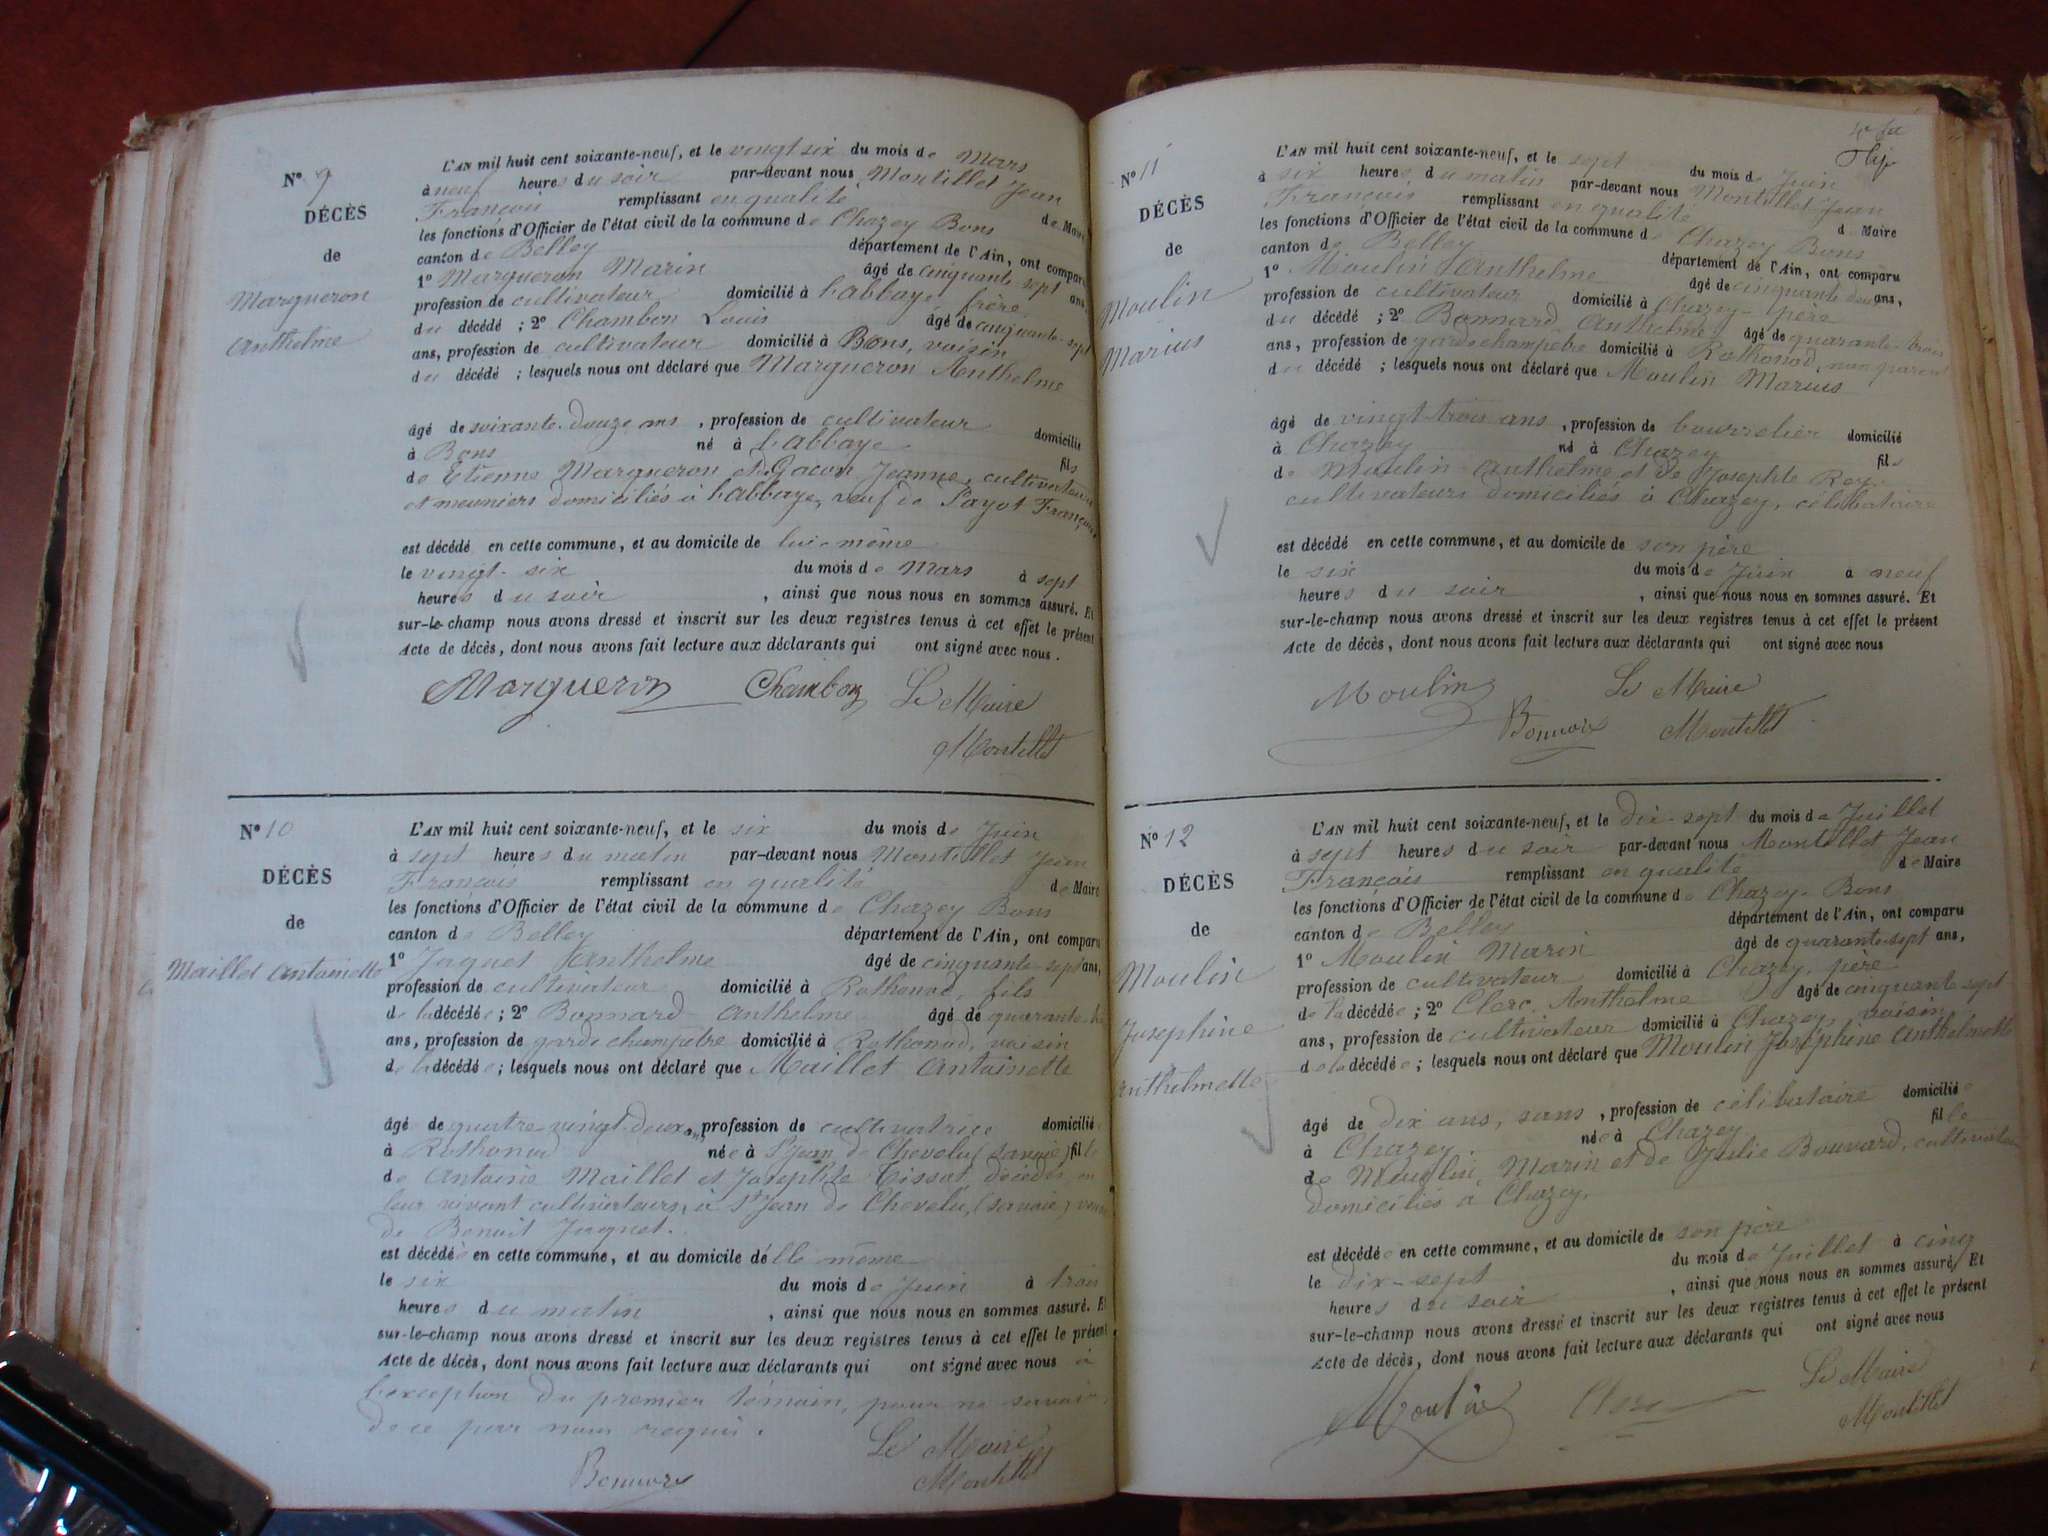 N° 9
DÉCÈS
de
Margueron
Anthelme
L'AN mil huit cent soixante-neuf, et le vingt six du mois de Mars
à neuf heures du soir par-devant nous Montillet Jean
François remplissant en qualité de Maire
les fonctions d'Officier de l'état civil de la commune de Chazey Bons
canton de Belley département de l'Ain, ont comparu
1° Margueron Marin âgé de cinquante sept ans,
profession de cultivateur domicilié à l'abbaye, frère
du décédé ; 2° Chambon Louis âgé de cinquante-sept
ans, profession de cultivateur domicilié à Bons, voisin
du décédé ; lesquels nous ont déclaré que Margueron Anthelme
âgé de soixante-douze ans, profession de cultivateur domicilié
à Bons né à l'abbaye fils
de Etienne Margueron et Gacon Jeanne, cultivateurs
et meuniers domiciliés à l'abbaye, veuf de Payot Françoise
est décédé en cette commune, et au domicile de lui-même
le vingt-six du mois de Mars à sept
heures du soir, ainsi que nous nous en sommes assuré. Et
sur-le-champ nous avons dressé et inscrit sur les deux registres tenus à cet effet le présent
Acte de décès, dont nous avons fait lecture aux déclarants qui ont signé avec nous.
Margueron Chambon Le Maire
Montillet
N° 10
DÉCÈS
de
Maillet Antoinette
L'AN mil huit cent soixante-neuf, et le six du mois de Juin
à sept heures du matin par-devant nous Montillet Jean
François remplissant en qualité de Maire
les fonctions d'Officier de l'état civil de la commune de Chazey Bons
canton de Belley département de l'Ain, ont comparu
1° Jaquet Anthelme âgé de cinquante sept ans,
profession de cultivateur domicilié à Rothonod, fils
de la décédée ; 2° Bonnard Anthelme âgé de quarante
ans, profession de garde champêtre domicilié à Rothonod, voisin
de la décédée ; lesquels nous ont déclaré que Maillet Antoinette
âgé de quatre-vingt-deux ans, profession de cultivatrice domicilié
à Rothonod née à St Jean de Chevelu (Savoie) fille
de Antoine Maillet et Josephte Tissot, décédés, en
leur vivant cultivateurs, à St Jean de Chevelu, (Savoie) veuve
de Benoit Jaquet.
est décédée en cette commune, et au domicile d'elle même
le six du mois de Juin à trois
heures du matin, ainsi que nous nous en sommes assuré. Et
sur-le-champ nous avons dressé et inscrit sur les deux registres tenus à cet effet le présent
Acte de décès, dont nous avons fait lecture aux déclarants qui ont signé avec nous à
l'exception du premier témoin, pour ne savoir,
de ce par nous requis.
Le Maire
Bonnard Montillet
N° 11
DÉCÈS
de
Moulin
Marius
L'AN mil huit cent soixante-neuf, et le sept du mois de Juin
à six heures du matin par-devant nous Montillet Jean
François remplissant en qualité de Maire
les fonctions d'Officier de l'état civil de la commune de Chazey Bons
canton de Belley département de l'Ain, ont comparu
1° Moulin Anthelme âgé de cinquante deux ans,
profession de cultivateur domicilié à Chazey, père
du décédé ; 2° Bonnard Anthelme âgé de quarante-trois
ans, profession de garde champêtre domicilié à Rothonod, non parent
du décédé ; lesquels nous ont déclaré que Moulin Marius
âgé de vingt trois ans, profession de bourrelier domicilié
à Chazey né à Chazey fils
de Moulin Anthelme et de Josephte Rey
cultivateurs domiciliés à Chazey, célibataire
est décédé en cette commune, et au domicile de son père
le six du mois de Juin à neuf
heures du soir, ainsi que nous nous en sommes assuré. Et
sur-le-champ nous avons dressé et inscrit sur les deux registres tenus à cet effet le présent
Acte de décès, dont nous avons fait lecture aux déclarants qui ont signé avec nous
Moulin Le Maire
Bonnard Montillet
N° 12
DÉCÈS
de
Moulin
Joséphine
Anthelmette
L'AN mil huit cent soixante-neuf, et le dix-sept du mois de Juillet
à sept heures du soir par-devant nous Montillet Jean
François remplissant en qualité de Maire
les fonctions d'Officier de l'état civil de la commune de Chazey-Bons
canton de Belley département de l'Ain, ont comparu
1° Moulin Marin âgé de quarante-sept ans,
profession de cultivateur domicilié à Chazey, père
de la décédée ; 2° Clerc Anthelme âgé de cinquante-sept
ans, profession de cultivateur domicilié à Chazey, voisin
de la décédée ; lesquels nous ont déclaré que Moulin Joséphine Anthelmette
âgé de dix ans, sans, profession de célibataire domicilié
à Chazey née à Chazey fille
de Moulin Marin et de Julie Bouvard, cultivateurs
domiciliés à Chazey.
est décédée en cette commune, et au domicile de son père
le dix-sept du mois de Juillet à cinq
heures du soir, ainsi que nous nous en sommes assuré. Et
sur-le-champ nous avons dressé et inscrit sur les deux registres tenus à cet effet le présent
Acte de décès, dont nous avons fait lecture aux déclarants qui ont signé avec nous
Le Maire
Moulin Clerc Montillet